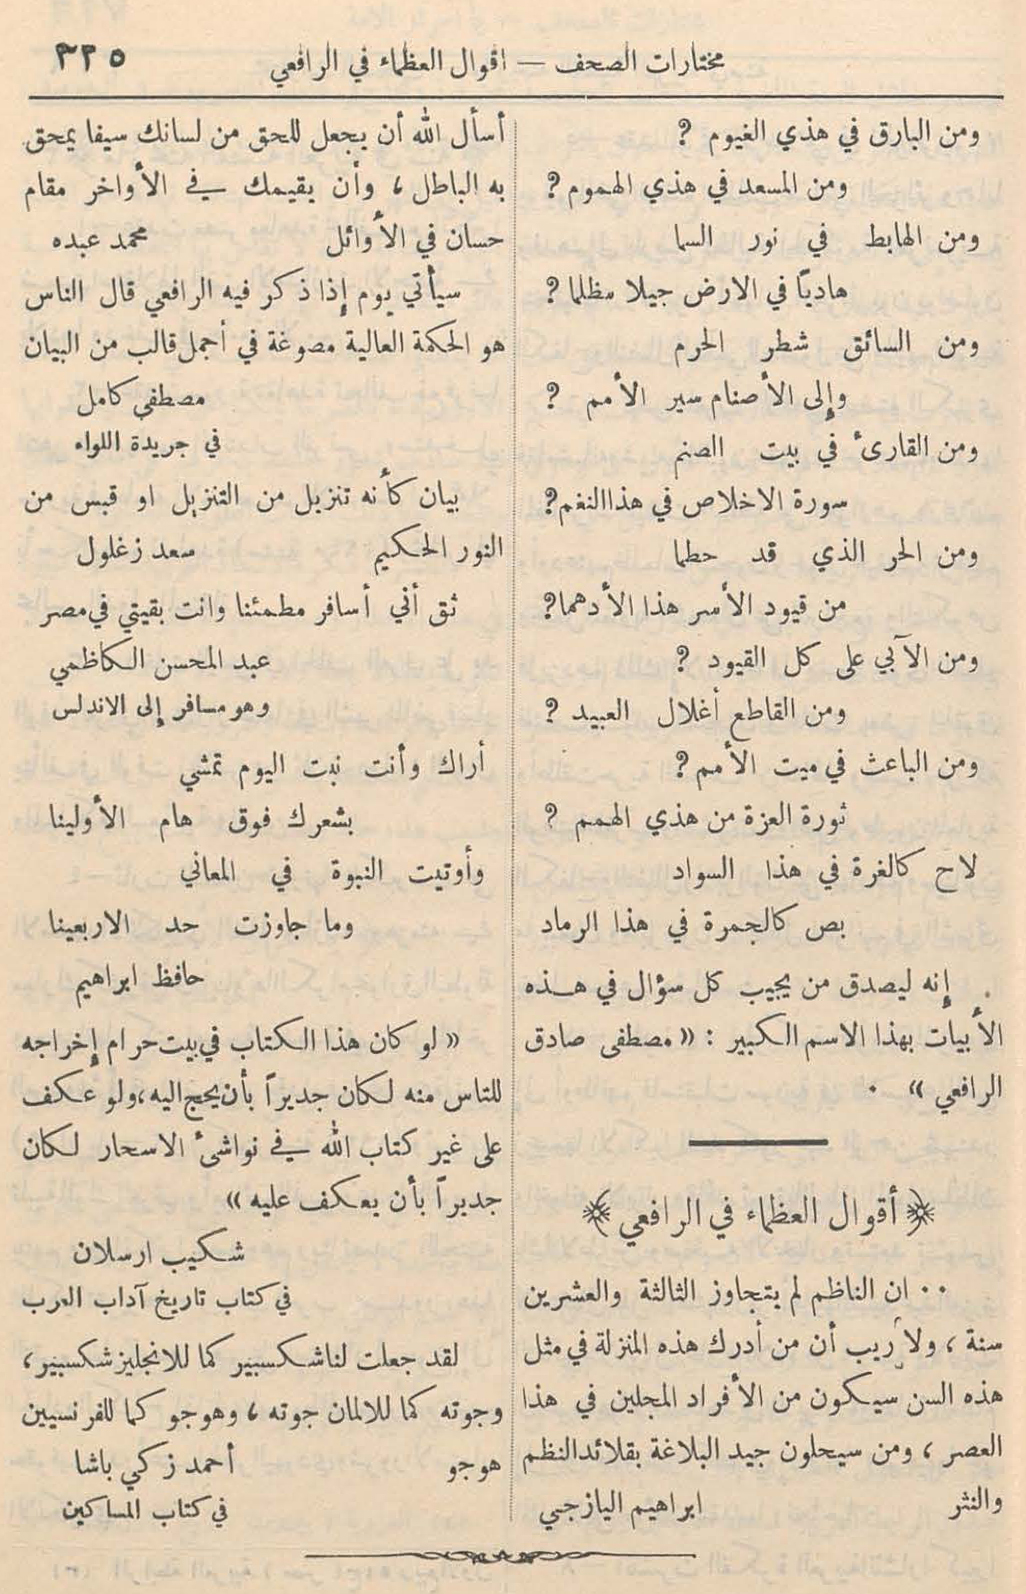 مختارات الصحف — اقوال العظماء في الرافعي ٣٢٥
ومن البارق في هذي الغيوم ?
ومن المسعد في هذي الهموم ?
ومن الهابط في نور السما
هادياً في الارض جيلا مظلما ?
ومن السائق شطر الحرم
وإلى الأصنام سير الأمم ?
ومن القارئ في بيت الصنم
سورة الاخلاص في هذا النغم ?
ومن الحر الذي قد حطما
من قيود الأسر هذا الأدهما ?
ومن الآبي على كل القيود ?
ومن القاطع أغلال العبيد ?
ومن الباعث في ميت الأمم ?
ثورة العزة من هذي الهمم ?
لاح كالغرة في هذا السواد
بص كالجمرة في هذا الرماد
إنه ليصدق من يجيب كل سؤال في هذه
الأبيات بهذا الاسم الكبير : « مصطفى صادق
الرافعي » .
﴿ أقوال العظماء في الرافعي ﴾
٠٠ ان الناظم لم يتجاوز الثالثة والعشرين
سنة ، ولا ريب أن من أدرك هذه المنزلة في مثل
هذه السن سيكون من الأفراد المجلين في هذا
العصر ، ومن سيحلون جيد البلاغة بقلائد النظم
والنثر ابراهيم اليازجي
أسأل الله أن يجعل للحق من لسانك سيفا يمحق
به الباطل ، وأن يقيمك في الأواخر مقام
حسان في الأوائل محمد عبده
سيأتي يوم إذا ذكر فيه الرافعي قال الناس
هو الحكمة العالية مصوغة في أجمل قالب من البيان
مصطفى كامل
في جريدة اللواء
بيان كأنه تنزيل من التنزيل او قبس من
النور الحكيم سعد زغلول
ثق أني أسافر مطمئنا وانت بقيتي في مصر
عبد المحسن الكاظمي
وهو مسافر إلى الاندلس
أراك وأنت نبت اليوم تمشي
بشعرك فوق هام الأولينا
وأوتيت النبوة في المعاني
وما جاوزت حد الاربعينا
حافظ ابراهيم
« لو كان هذا الكتاب في بيت حرام إخراجه
للناس منه لكان جديراً بأن يحج اليه ، ولو عكف
على غير كتاب الله في نواشئ الاسحار لكان
جديراً بأن يعكف عليه »
شكيب ارسلان
في كتاب تاريخ آداب العرب
لقد جعلت لنا شكسبير كما للانجليز شكسبير ،
وجوته كما للالمان جوته ، وهوجو كما للفرنسيين
هوجو أحمد زكي باشا
في كتاب المساكين